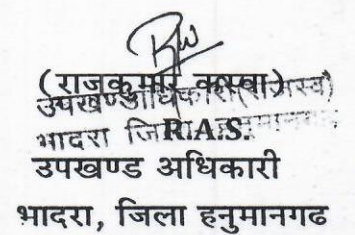 (राजकुमार कस्वा)
उपखण्ड अधिकारी (राजस्व)
भादरा जिला हनुमानगढ़
R.A.S.
उपखण्ड अधिकारी
भादरा, जिला हनुमानगढ